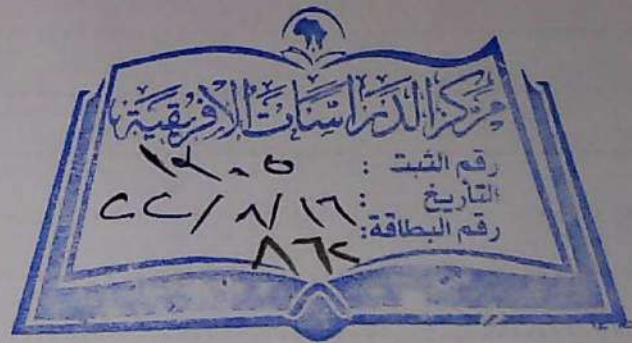 مركز الدراسات الافريقية
رقم الثبت :
التأريخ : ٢٢/٨/١٦
رقم البطاقة: ٨٦٢